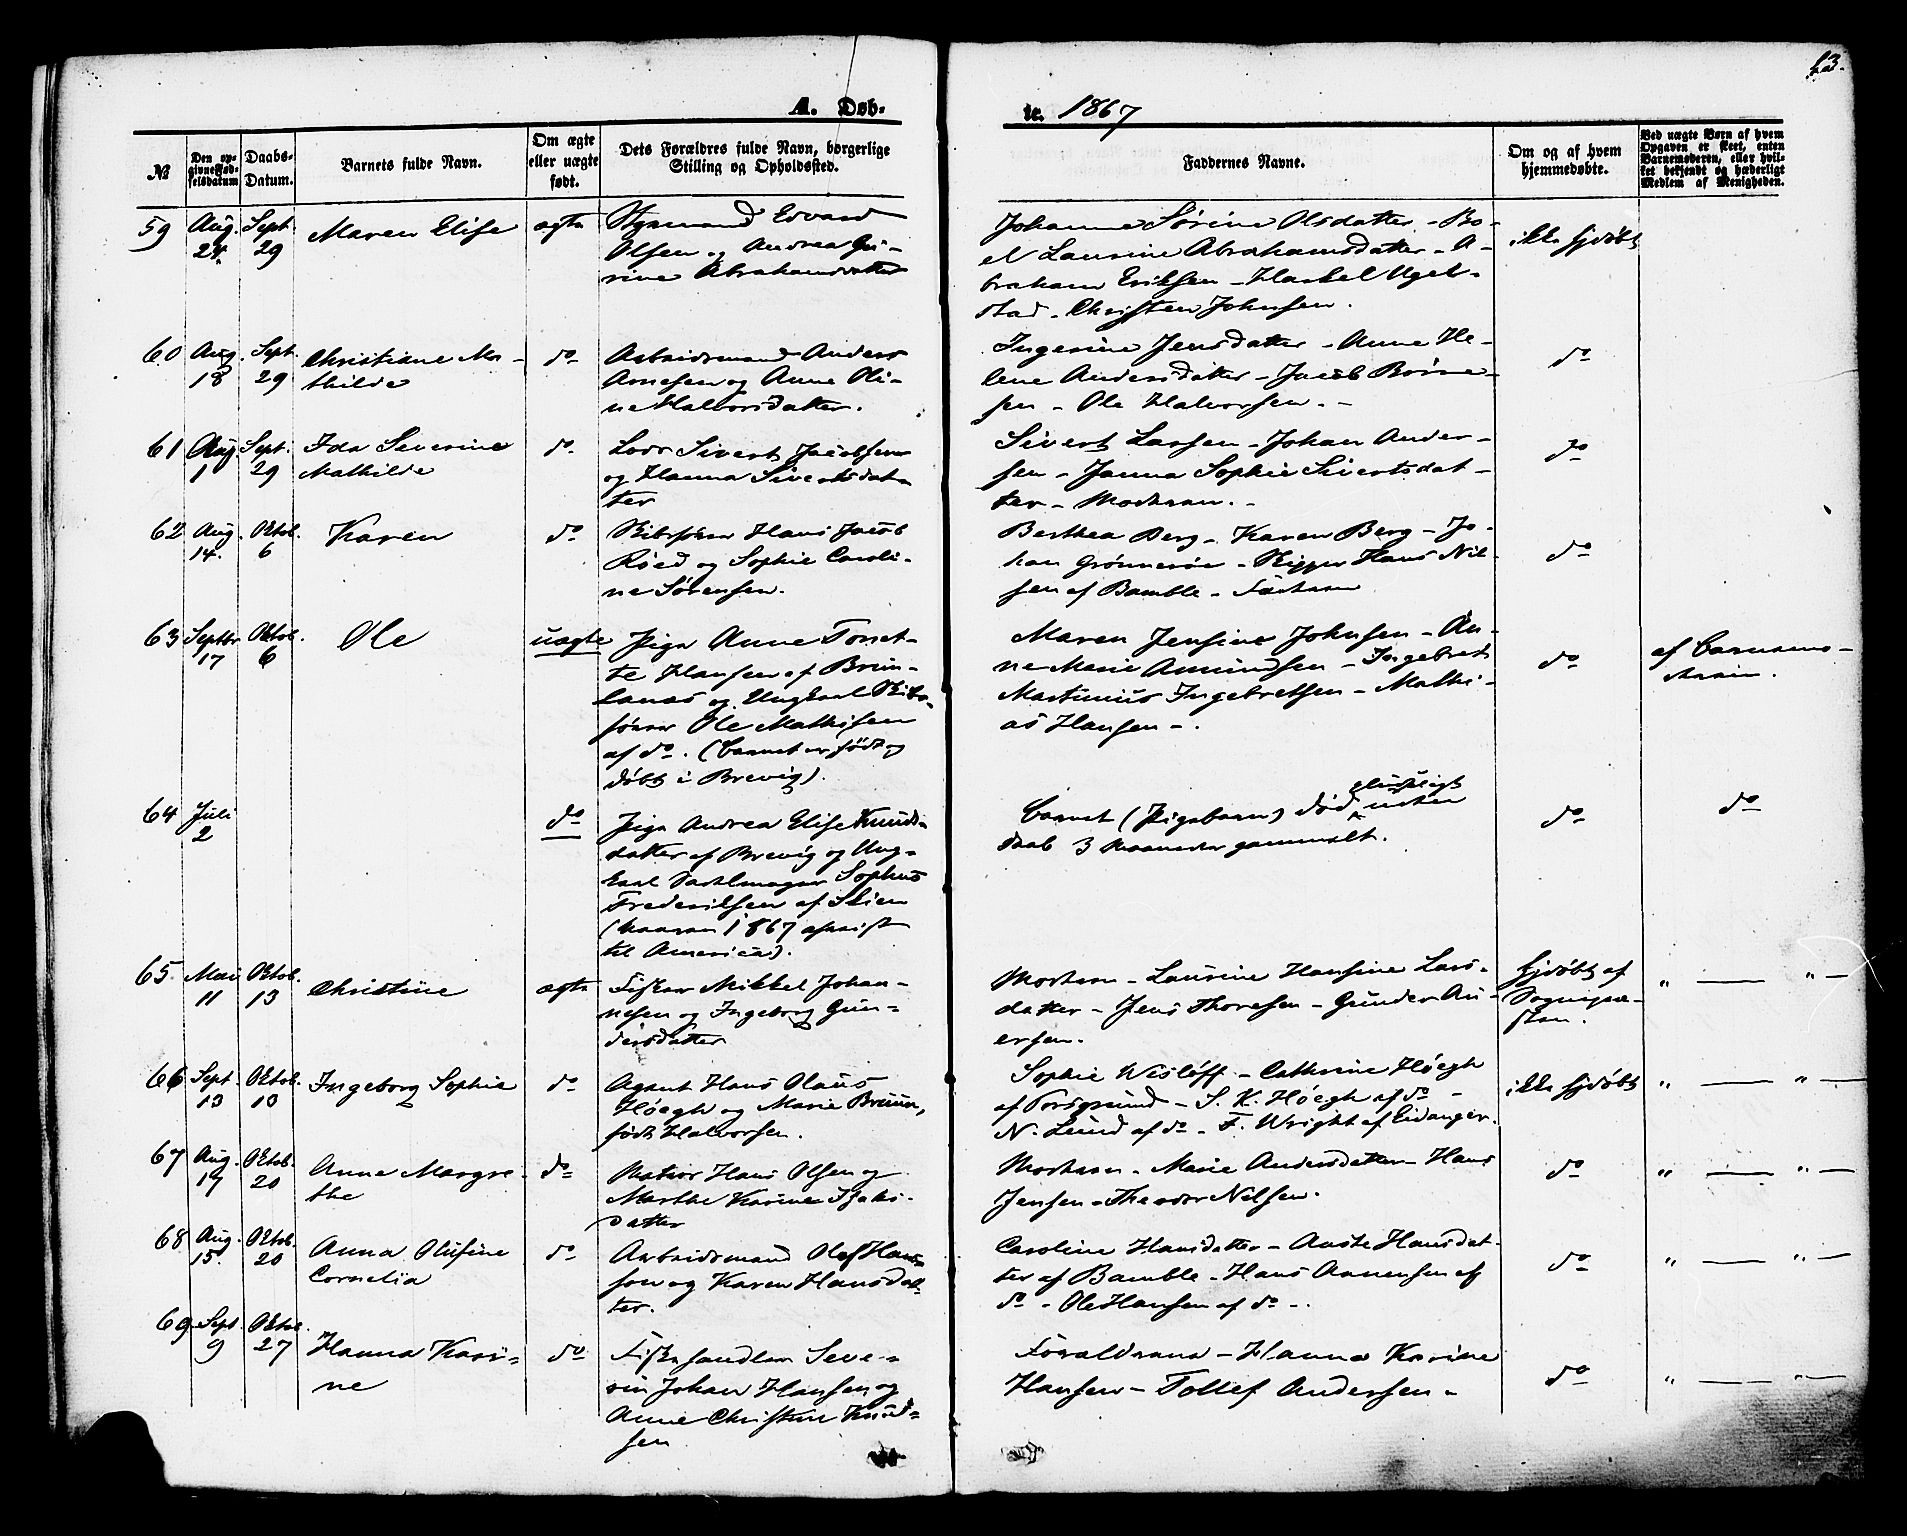 A. Døb-
te. 1867
63.
№
Den op-
givne Fød-
selsdatum
Daabs-
Datum.
Barnets fulde Navn.
Om ægte
eller uægte
født.
Dets Forældres fulde Navn, borgerlige
Stilling og Opholdssted.
Faddernes Navne.
Om og af hvem
hjemmedøbte.
Ved uægte Børn af hvem
Opgaven er skeet, enten
Barnemoderen, eller hvil-
ket bekjendt og hæderligt
Medlem af Menigheden.
59
Aug.
24.
Sept.
29
Maren Elise
ægte
Styrmand Edvard
Olsen og Andrea Gu-
rine Abrahamsdatter
Johanne Sørine Olsdatter - Bo-
el Laurine Abrahamsdatter - A-
braham Eriksen - Haakel Ugel-
stad - Christen Johnsen.
ikke hjdøbt
60
Aug.
18
Sept.
29
Christiane Ma-
thilde
do
Arbeidsmand Anders
Arnesen og Anne Oli-
ne Halvorsdatter.
Ingerine Jensdatter - Anne He-
lene Andersdatter - Jacob Børre-
sen - Ole Halvorsen. -
do
61
Aug
1
Sept.
29
Ida Severine
Mathilde
do.
Lods Sivert Jacobsen
og Hanna Sivertsdat-
ter
Sivert Larsen - Johan Ander-
sen - Janna Sophie Sivertsdat-
ter - Moderen. -
do
62
Aug.
14.
Oktob.
6
Karen
do
Skibsfører Hans Jacob
Røed og Sophie Caroli-
ne Sørensen.
Berthea Berg - Karen Berg - Jo-
han Grønnerøe - Skipper Hans Nil-
sen af Bamble - Faderen
do
63
Septbr.
17
Oktob.
6
Ole
uægte
Pige Anne Toret-
te Hansen af Brun-
lanæs og Ungkarl Skibs-
fører Ole Mathisen
af do. (Barnet er født og
døbt i Brevig).
Maren Jensine Johnsen - An-
ne Marie Amundsen - Ingebret
Martinius Ingebretsen - Mathi-
as Hansen -.
do
af Barnemo-
deren.
64
Juli
2
do
Pige Andrea Elise Knuds-
datter af Brevig og Ung-
karl Sadelmager Sophus
Frederiksen af Skien
(Vaaren 1867 afreist
til America).
pludseligt
Barnet (Pigebarn) død uden
daab 3 Maaneder gammelt.
do
do
65
Mai
11
Oktob.
13
Christine
ægte
Fisker Mikkel Johan-
nesen og Ingeborg Gun-
dersdatter
Moderen - Laurine Hansine Lars-
datter - Jens Thoresen - Gunder An-
ersen.
hjdøbt af
Sognepræ-
sten.
" — " —
66
Sept.
13
Oktob.
13
Ingeborg Sophie
do
Agent Hans Olaus
Høegh og Marie Bruun,
født Halvorsen.
Sophie Wisløff - Cathrine Høegh
af Porsgrund - S. K. Høegh af do -
N. Lund af do - F. Wright af Eidanger.
ikke hjdøbt
" — " —
67
Aug.
17
Oktob.
20
Anne Margre-
the
do
Matros Hans Olsen og
Marthe Karine Isaks-
datter
Moderen - Marie Andersdatter - Hans
Jensen - Theodor Nilsen.
do
" — " —
68
Aug.
15.
Oktob.
20
Anna Olufine
Cornelia
do
Arbeidsmand Olaf Han-
sen og Karen Hansdat-
ter.
Caroline Hansdatter - Aaste Hansdat-
ter af Bamble - Hans Annensen af
do - Ole Hansen af do -.
do
" — " —
69
Sept.
9
Oktob.
27
Hanna Kari-
ne
do
Fiskehandler Seve-
rin Johan Hansen og
Anne Christine Knud-
sen
Forældrene - Hanna Karine
Hansen - Tollef Andersen -
do
" — " —